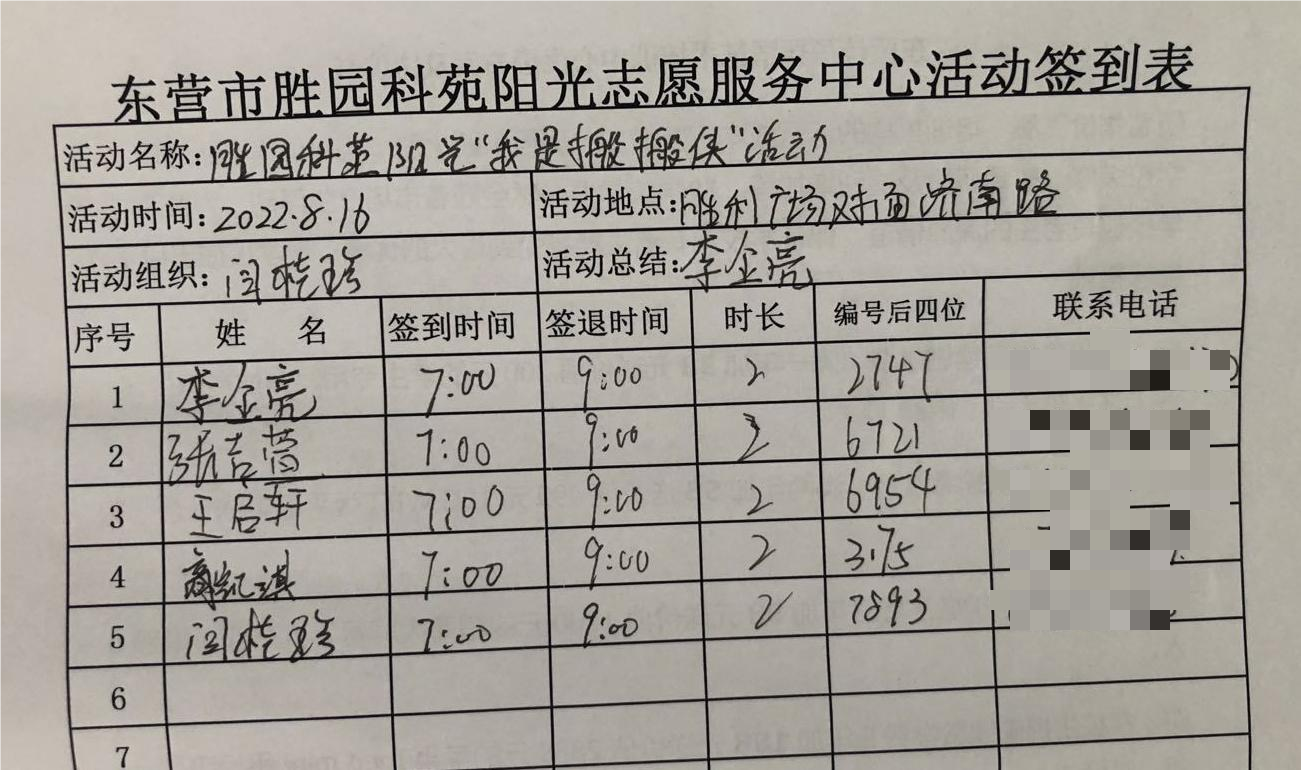 东营市胜园科苑阳光志愿服务中心活动签到表
活动名称:胜园科苑阳光“我是搬搬侠”活动
活动时间:2022.8.16 活动地点:胜利广场对面济南路
活动组织:闫桂珍 活动总结:李金亮
序号 姓 名 签到时间 签退时间 时长 编号后四位 联系电话
1 李金亮 7:00 9:00 2 2747
2 张吉营 7:00 9:00 2 6721
3 王启轩 7:00 9:00 2 6954
4 凯淇 7:00 9:00 2
5 闫桂珍 7:00 9:00 2 7893
6
7